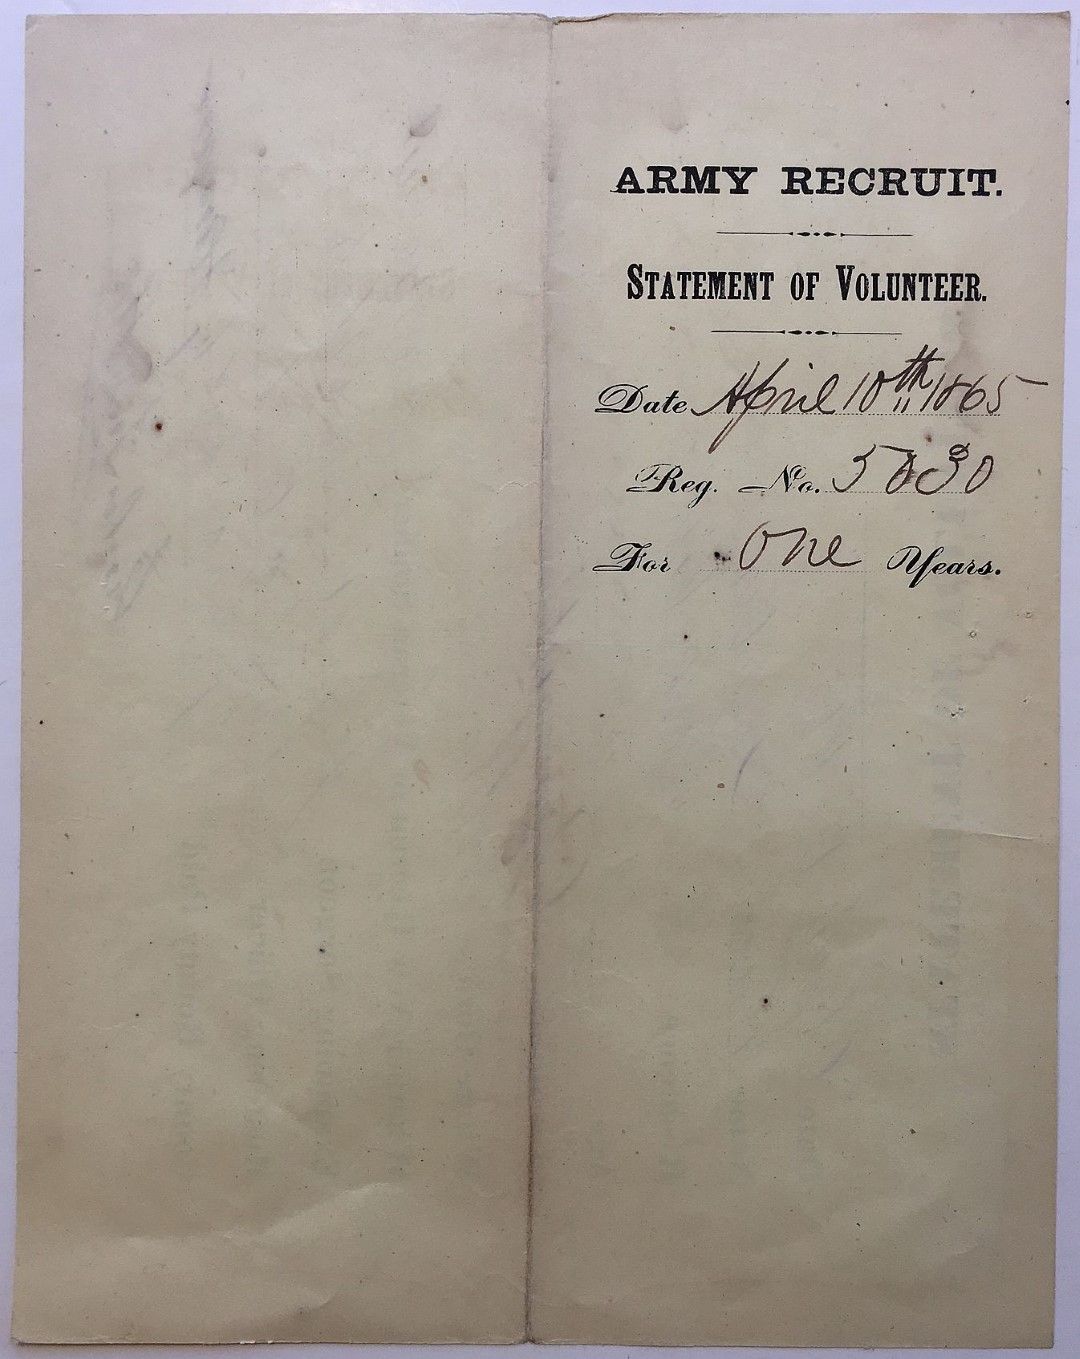 ARMY RECRUIT.
STATEMENT OF VOLUNTEER.
Date April 10th 1865
Reg. No.
For One Years.